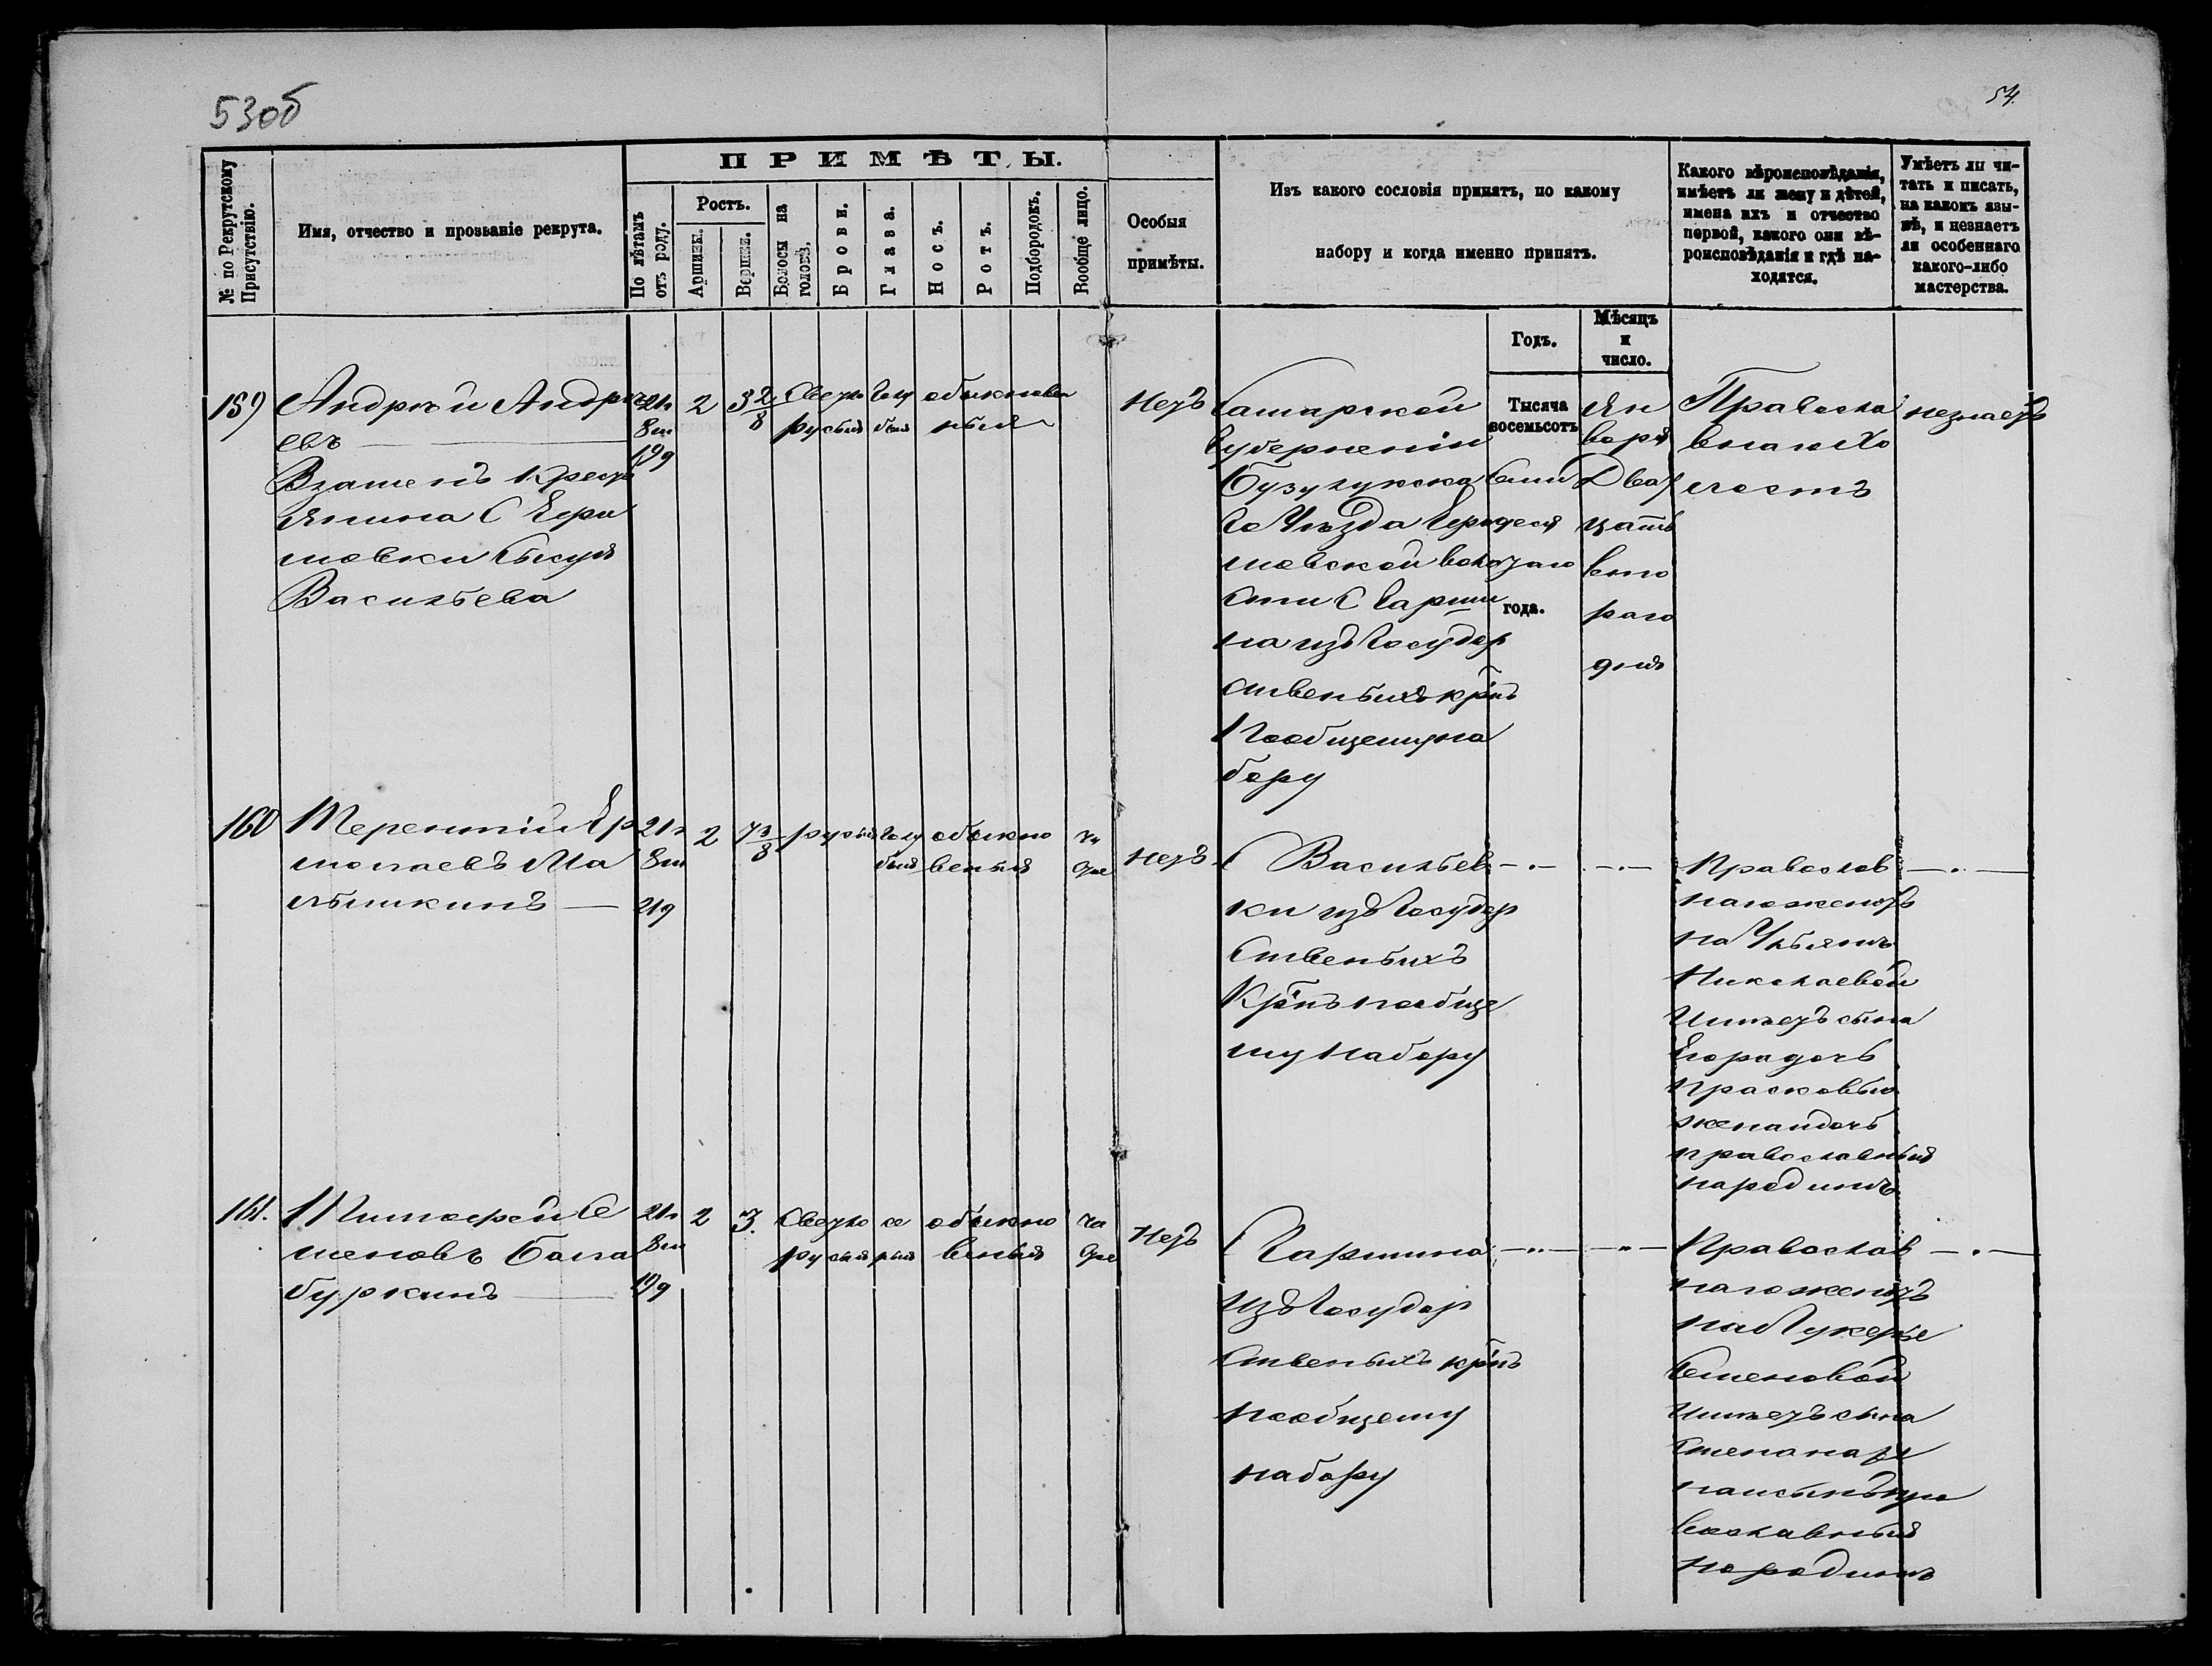 53об
54.
№ по Рекрутскому Присутствію.
Имя, отчество и прозваніе рекрута.
ПРИМѢТЫ.
По лѣтамъ отъ роду.
Ростъ.
Аршины.
Вершки.
Волосы на головѣ.
Брови.
Глаза.
Носъ.
Ротъ.
Подбородокъ.
Вообще лицо.
Особыя
примѣты.
Изъ какого сословія принятъ, по какому
набору и когда именно принятъ.
Годъ.
Мѣсяцъ
и
число.
Какого вѣроисповѣданія,
имѣетъ ли жену и дѣтей,
имена ихъ и отчество
первой, какого они вѣ-
роисповѣданія и гдѣ на-
ходятся.
Умѣетъ ли чи-
тать и писать,
на какомъ язы-
кѣ, и незнаетъ
ли особеннаго
какого-либо
мастерства.
159
Андрей Андре
евъ
Взаменъ Крестъ
янина С Ера
шовки Сысуя
Васильева
21г
8м
19д
2
3 2/8
Светло
русыя
Голу
быя
обыкновен
ныя
Нетъ
Самарской
Губерненіи
Бузулукска
го Уѣзда Гер
шовской воло
сти С Гарши
на изъ Государ
ственыхъ крнъ
Пообщему на
бору
Тысяча
восемьсотъ
Семи
десят
таго
года.
Ян
варя
Двад
цать
вто
раго
дня
Правосла
внаго Хо
лостъ
незнаетъ
160
Терентій Ер
молаевъ Ма
лышкинъ
21г
8м
21д
2
7 3/8
русыя
Голу
быя
обыкно
веныя
чи
стое
Нетъ
С Васильев
ки изъ Государ
ственыхъ
Крнъ пообще
му набору
Православ
наго женотъ
на Ульянѣ
Николаевой
Имѣетъ сына
Егора дочь
Прасковью
жена и дочь
православныя
народинѣ
161.
Тимофей Се
меновъ Бала
буркинъ
21г
8м
19д
2
3.
Светло
русыя
се
рыя
обыкно
веныя
Нетъ
С Гаршина
изъ Государ
ственыхъ крнъ
пообщему
набору
Православ
наго женотъ
на Лукерье
Семеновой
Имѣетъ сына
Степана
на родинѣ